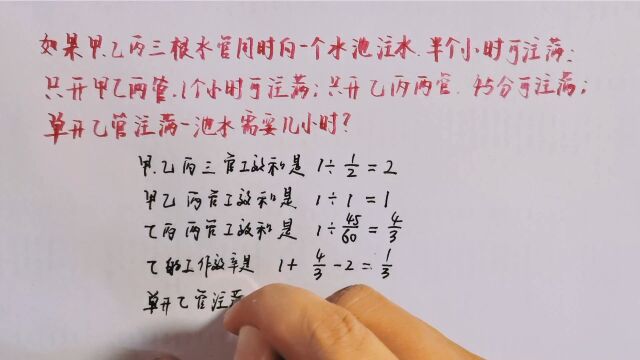 如果甲.乙丙三根水管同时向一个水池注水.半个小时可注满;
只开甲乙两管.1个小时可注满;只开乙丙两管.45分可注满;
单开乙管注满一池水需要几小时?
甲.乙丙三管工效和是 1÷1/2=2
甲乙两管工效和是 1÷1=1
乙丙两管工效和是 1÷45/60=4/3
乙的工作效率是 1+4/3-2=1/3
单开乙管注满